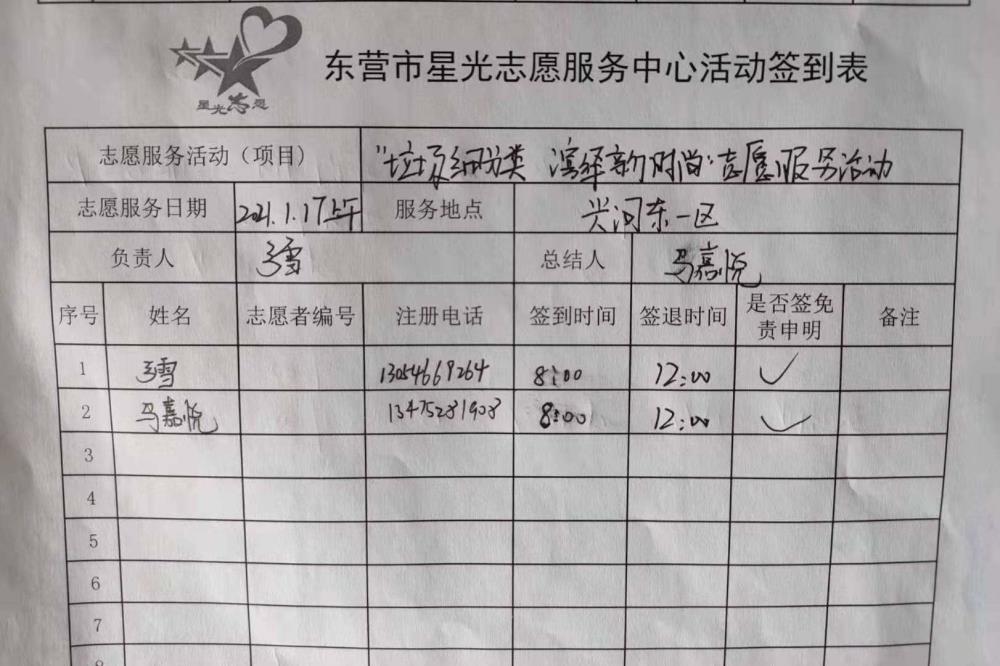 星光志愿
东营市星光志愿服务中心活动签到表
志愿服务活动（项目） "垃圾细分类 滨经新时尚"志愿服务活动
志愿服务日期 2021.1.17上午 服务地点 兴河东一区
负责人 雪 总结人 马嘉悦
序号 姓名 志愿者编号 注册电话 签到时间 签退时间 是否签免责申明 备注
1 雪 13054669264 8:00 12:00 ✓
2 马嘉悦 13475281908 8:00 12:00 ✓
3
4
5
6
7
8